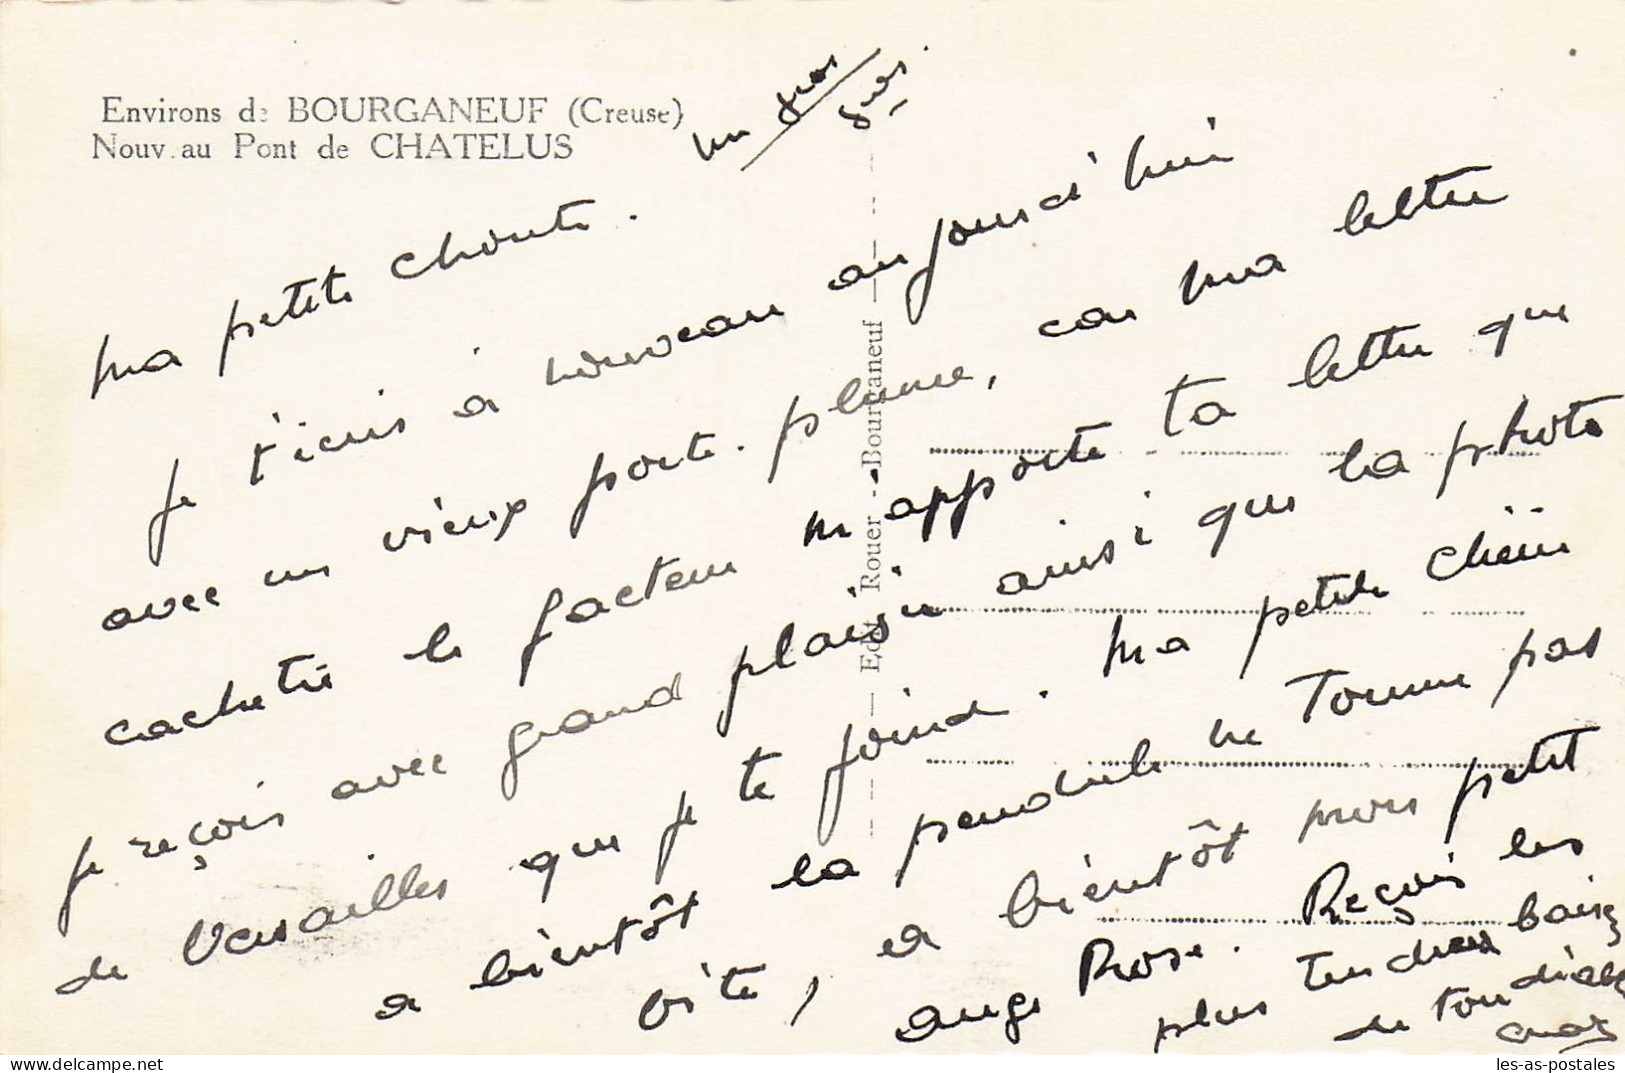 Environs de BOURGANEUF (Creuse)
Nouv.au Pont de CHATELUS
un gros
gros.
Ma petite choute.
Je t'ecris à nouveau aujourd'hui
avec un vieux porte-plume, car ma lettre
cachetée le facteur m'apporte ta lettre que
je reçois avec grand plaisir ainsi que la photo
de Versailles que je te joind. Ma petite chérie
a bientôt la pendule ne tourne pas
vite, a bientôt mon petit
ange Rose. Reçois les
plus tendres baisers
de ton diable
Edit Rouer - Bourganeuf
les-as-postales